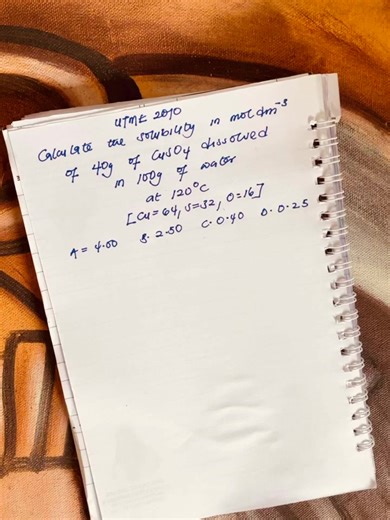 UTME 2010
Calculate the solubility in moldm⁻³
of 40g of CuSO4 dissolved
in 100g of water
at 120°C
[Cu=64, S=32, O=16]
A = 4.00 B. 2.50 C. 0.40 D. 0.25